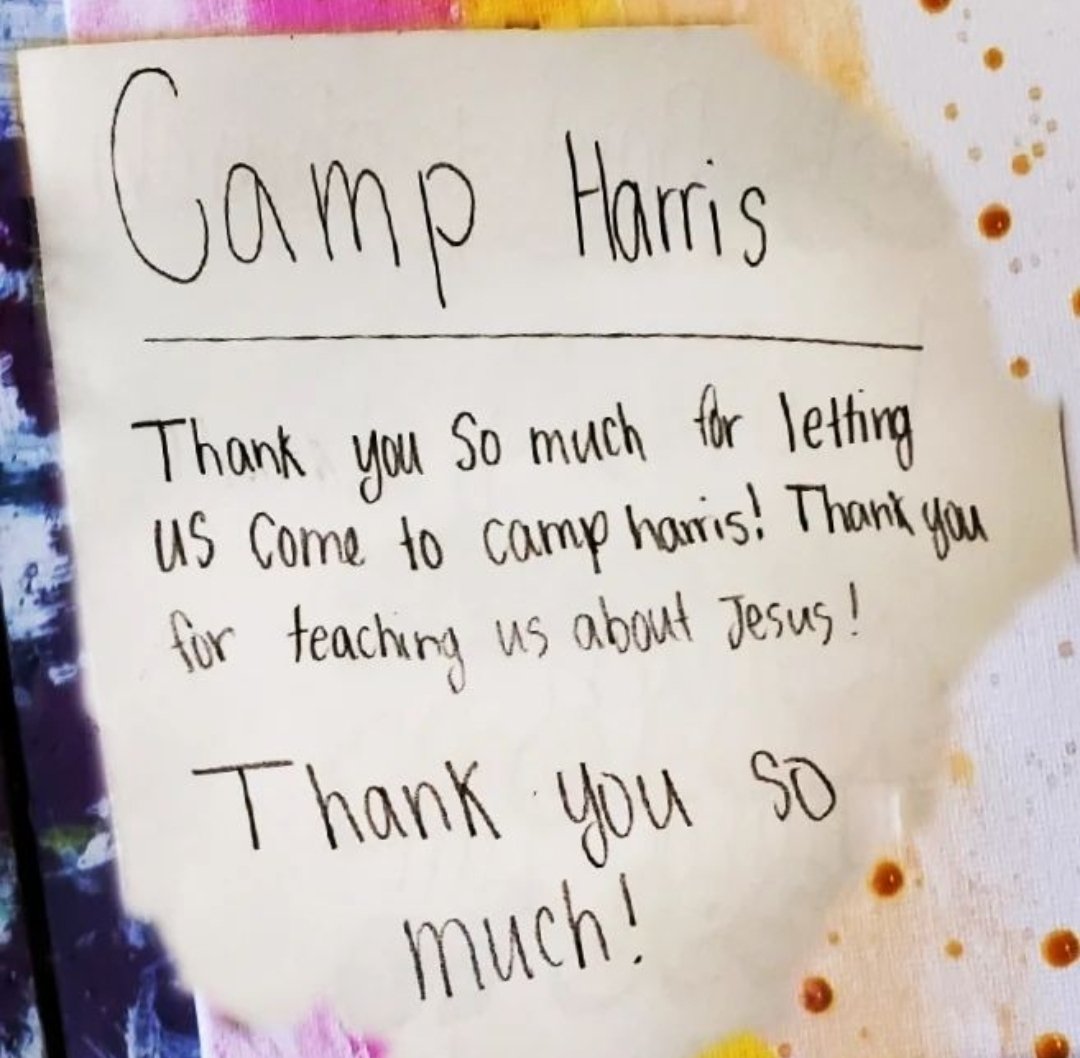 Camp Harris
Thank you So much for letting
us Come to camp harris! Thank you
for teaching us about Jesus!
Thank you so
much!